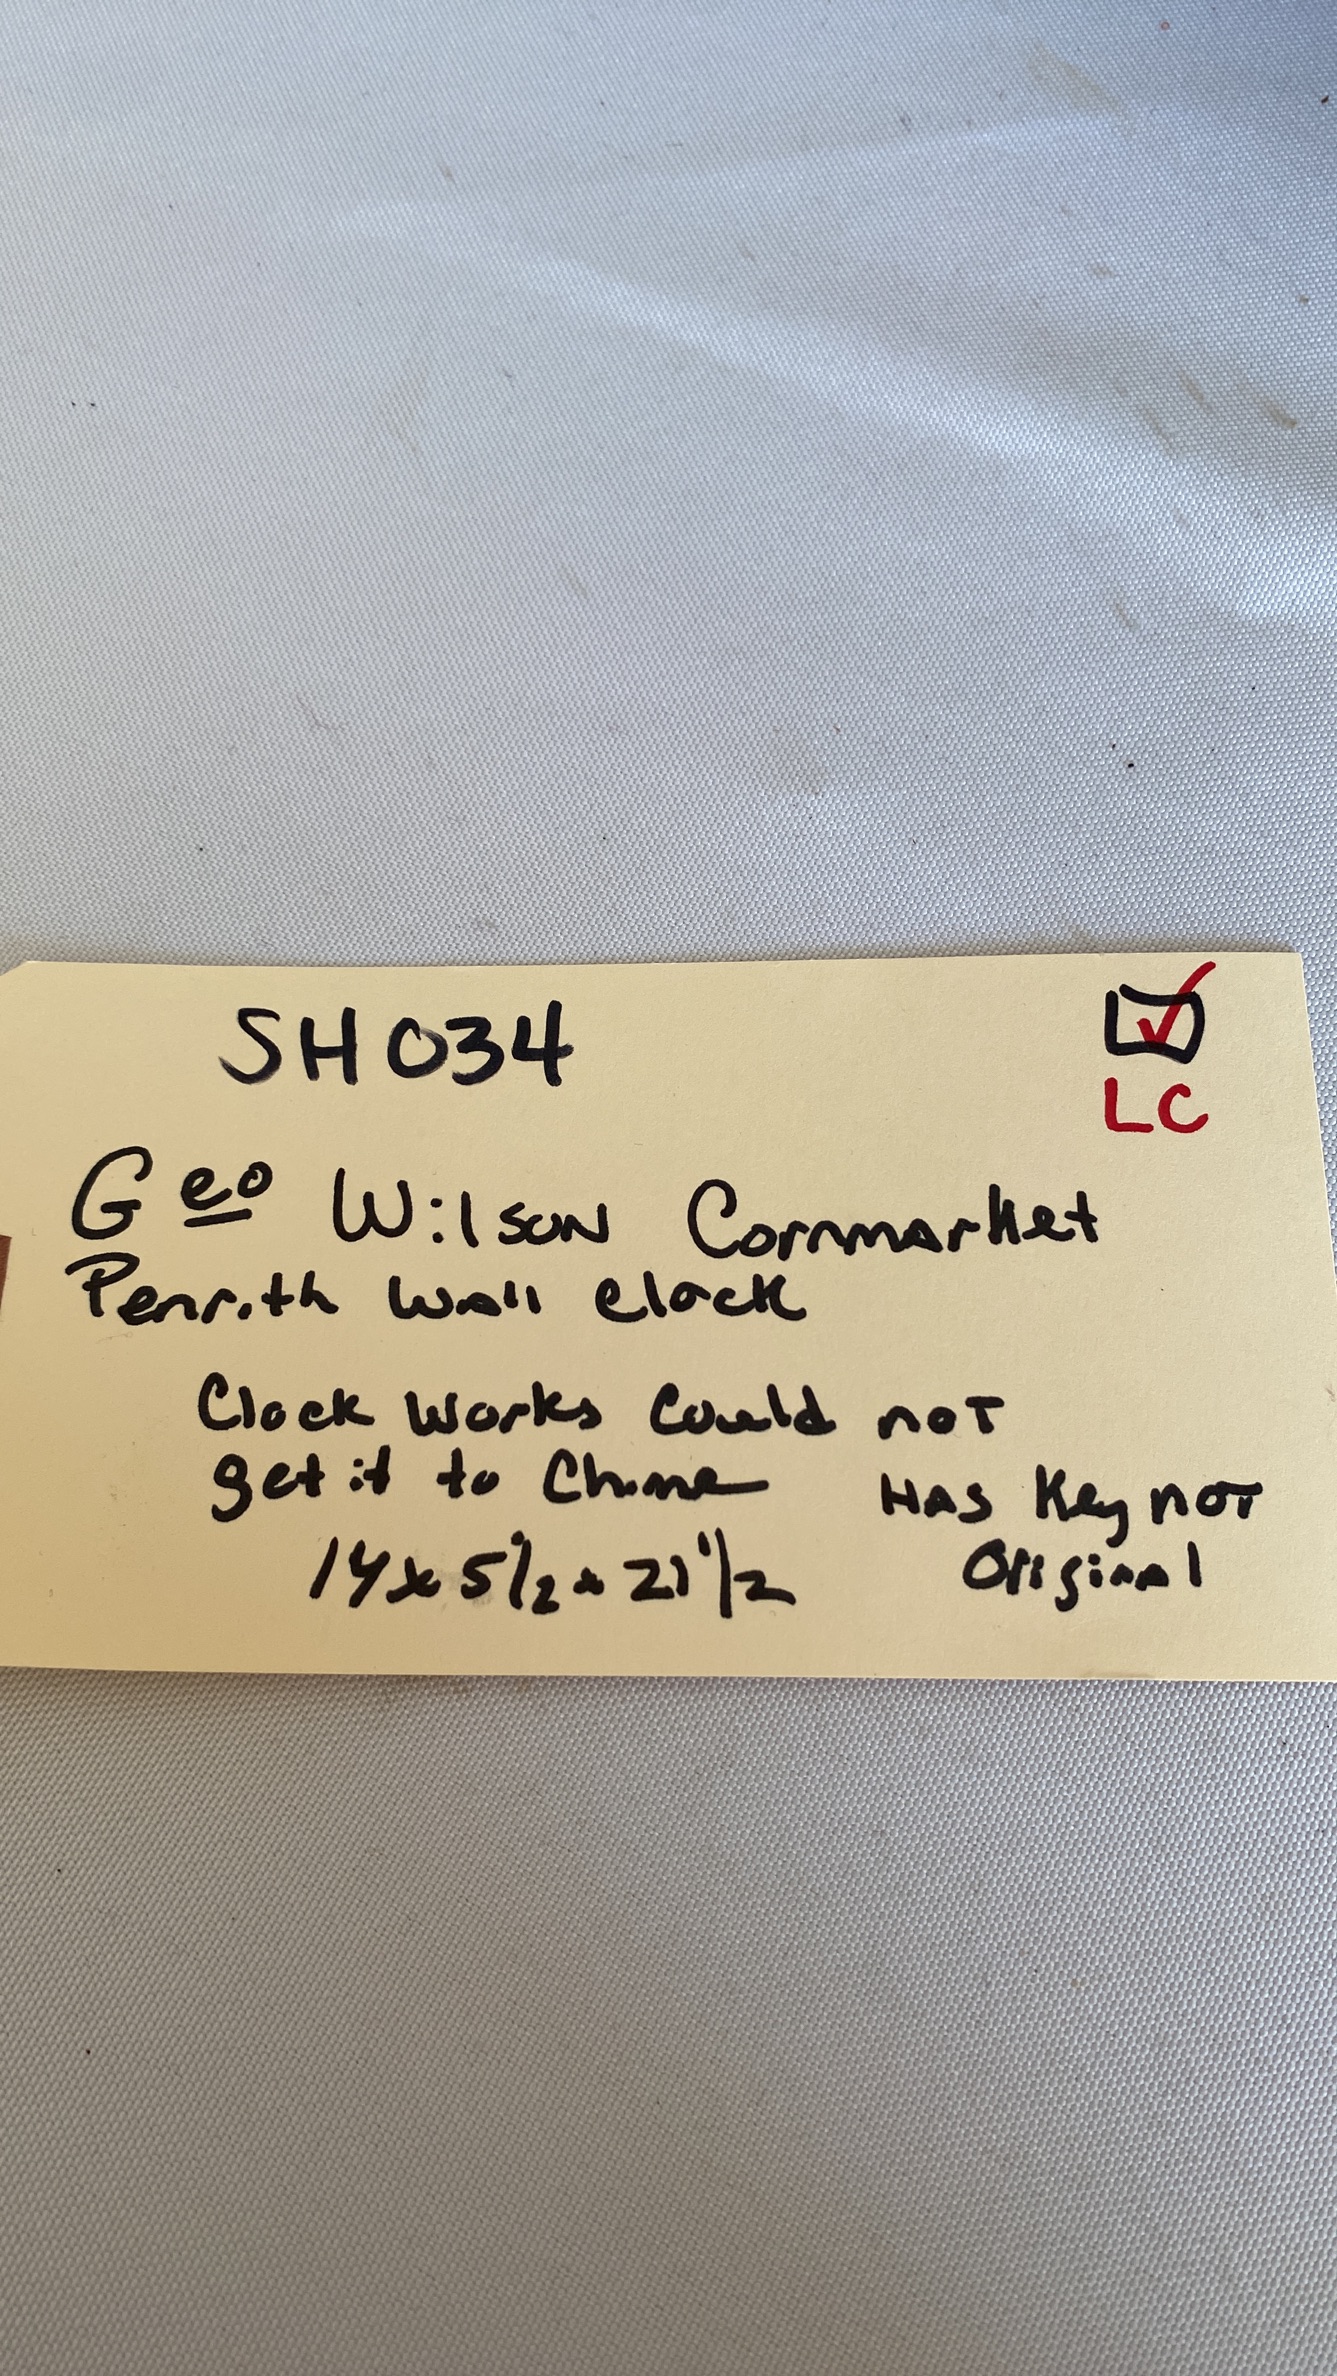 SH034
LC
Geo Wilson Cornmarket
Penrith Wall Clock
Clock Works Could not
get it to Chime
Has Key not
Original
14 x 5 1/2 x 21 1/2